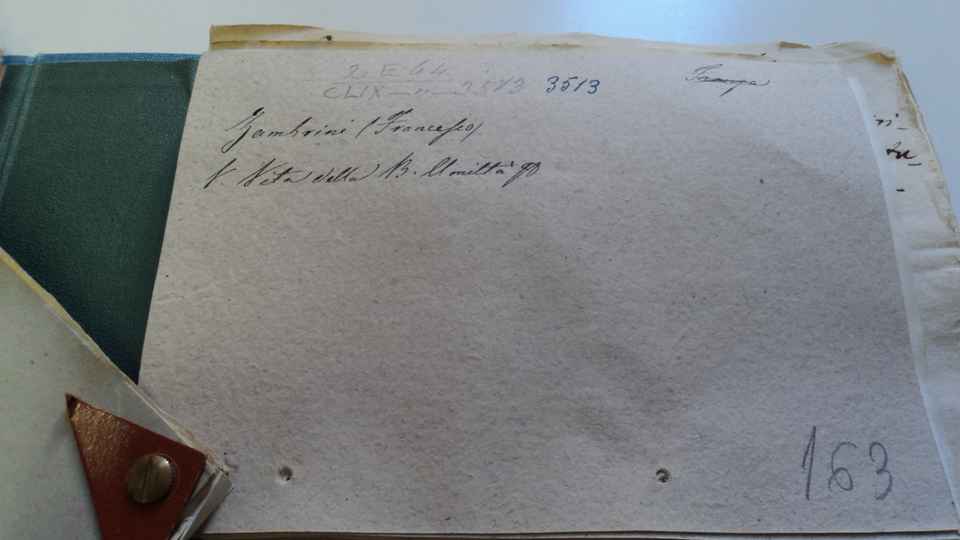 2. E 44
CLIX 3513 3513
Stampa
Zambrini (Francesco)
V. Vita della B. Umiltà
ri-
163